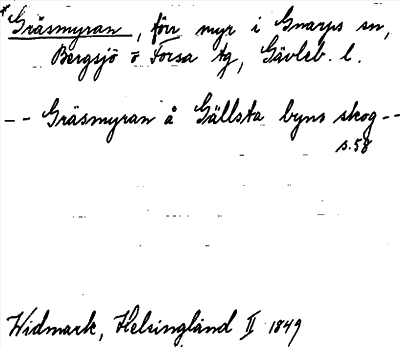 *Gräsmyran, förr myr i Gnarps sn,
Bergsjö o Forsa tg, Gävleb. l.
-- Gräsmyran å Gällsta byns skog --
s. 58
Widmark, Helsingland II 1849